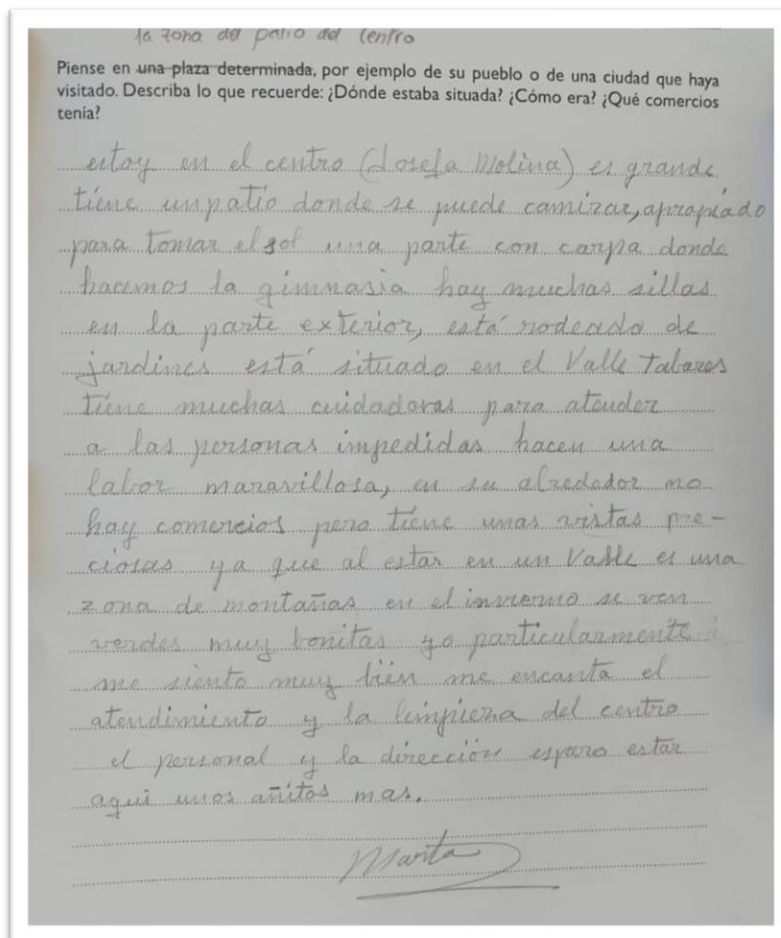 la zona del patio del centro
Piense en una plaza determinada, por ejemplo de su pueblo o de una ciudad que haya
visitado. Describa lo que recuerde: ¿Dónde estaba situada? ¿Cómo era? ¿Qué comercios
tenía?
estoy en el centro (Josefa Molina) es grande
tiene un patio donde se puede camirar, apropiado
para tomar el sol una parte con carpa donde
hacemos la gimnasia hay muchas sillas
en la parte exterior, está rodeado de
jardines está situado en el Valle Tabares
tiene muchas cuidadoras para atender
a las personas impedidas hacen una
labor maravillosa, en su alrededor no
hay comercios pero tiene unas vistas pre-
ciosas ya que al estar en un Valle es una
zona de montañas en el invierno se ven
verdes muy bonitas yo particularmente
me siento muy bién me encanta el
atendimiento y la limpieza del centro
el personal y la dirección espero estar
aqui unos añitos mas.
Marita